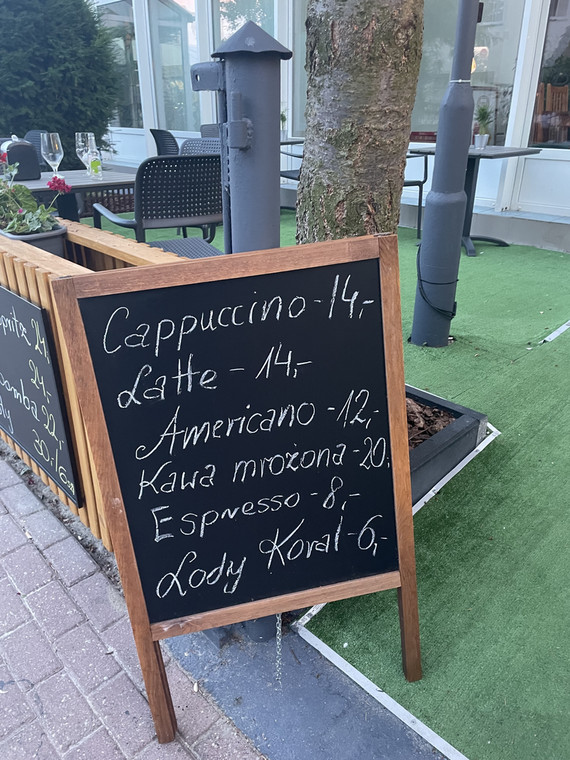 Cappuccino - 14,-
Latte - 14,-
Americano - 12,-
Kawa mrożona - 20.
Espresso - 8,-
Lody Koral - 6,-
24,-
24,-
22,-
30,-